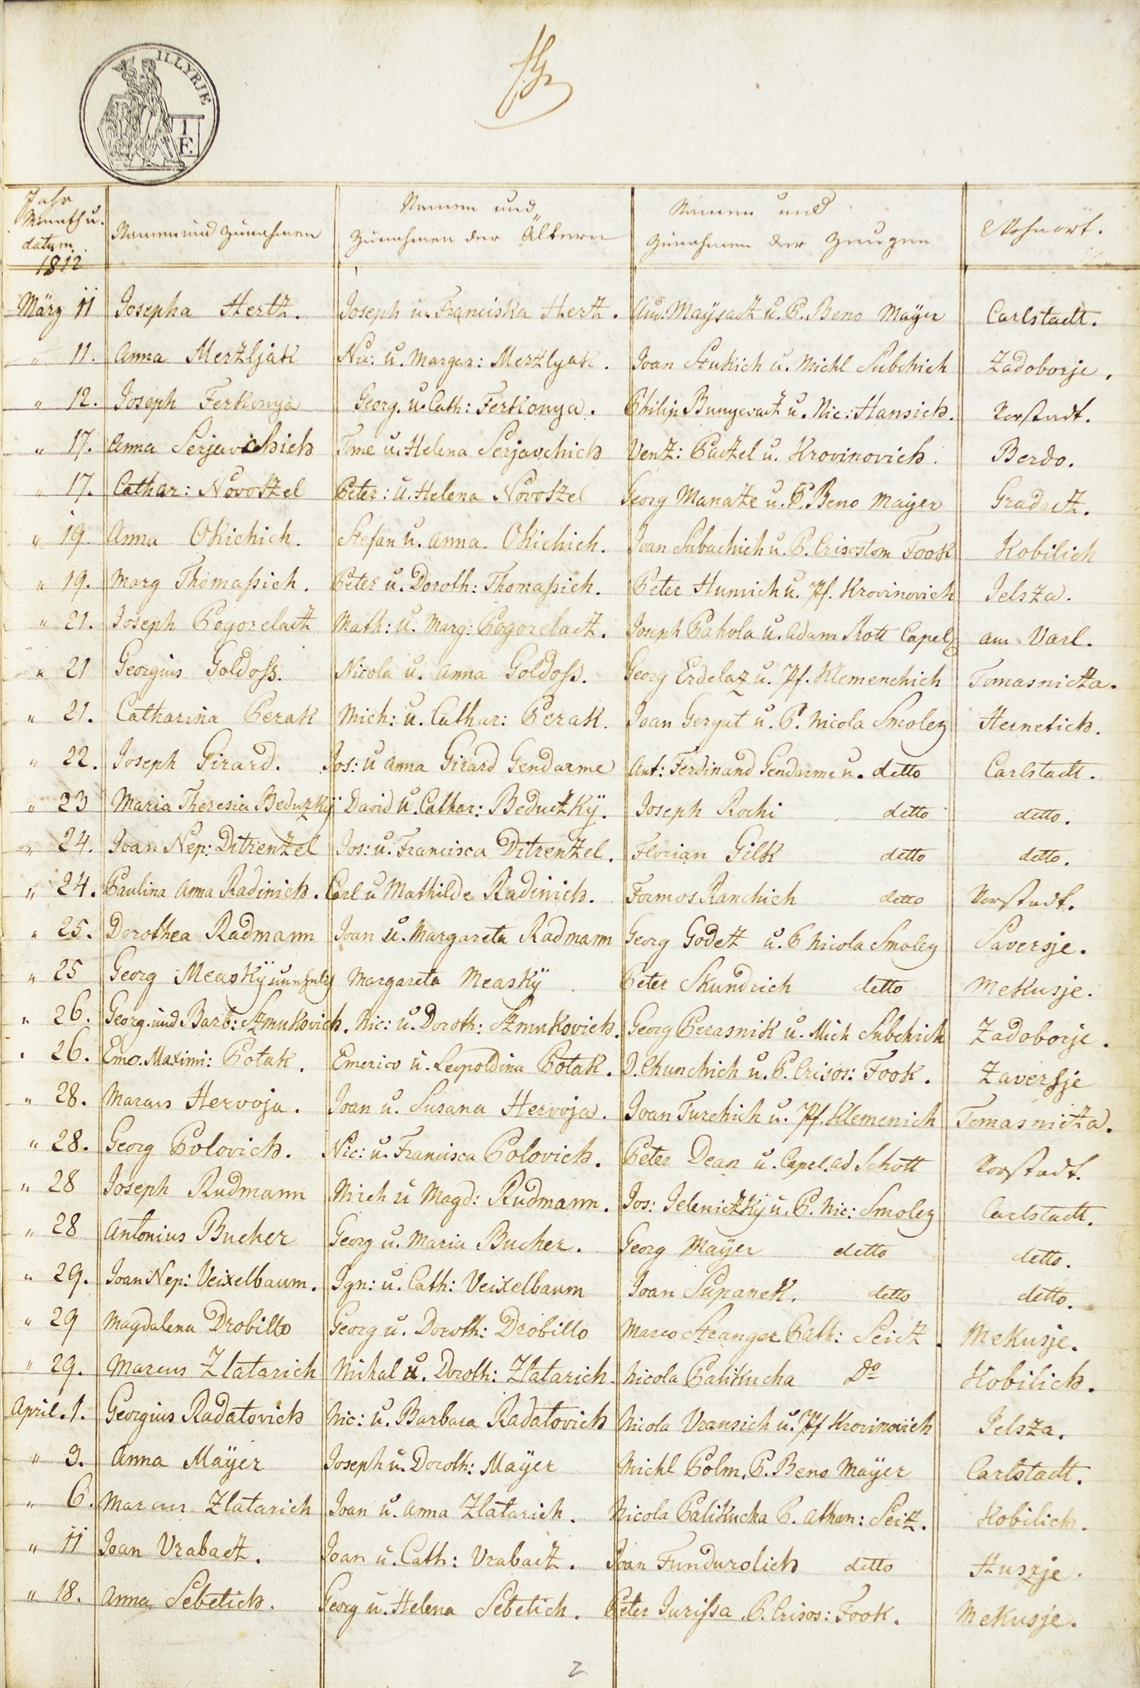 ILLYRIE
1 F.
Jahr
Monath u.
datum
1812
Namen und Zunahmen
Namen und
Zunahmen der Ältern
Namen und
Zunahmen der Zeugen
Wohnort.
März 11 Josepha Hertz. Joseph u. Franciska Hertz. And. Maysack u. P. Beno Mayer Carlstadt.
" 11. Anna Merzljak Nic: u. Margar: Merzlyak. Joan Stukich u. Michl Subchich Zadoborje.
" 12. Joseph Ferkonya Georg. u. Cath: Ferkonya. Philip Bunyevacz u. Nic: Hansich. Vorstadt.
" 17. Anna Serjavchich Tome u. Helena Serjavchich Venz: Paczel u. Krovinovich. Berdo.
" 17. Cathar: Novoszel Peter: u. Helena Novoszel Georg Manacze u. P. Beno Mayer Gradacz.
" 19 Anna Okichich. Stefan u. Anna Okichich. Ivan Subachich u. P. Crisostom Fook Kobilich
" 19. Marg Thomassich. Peter u. Doroth: Thomassich. Peter Hunsich u. Pf. Krovinovich Jelsza.
" 21. Joseph Pogorelacz Math: u. Marg: Pogorelacz. Joseph Pahola u. Adam Rott Capel am Varl.
" 21 Georgius Goldoss. Nicola u. Anna Goldoss. Georg Erdelaz u. Pf. Klemenchich Tomasnicza.
" 21. Catharina Perak Mich: u. Cathar: Perak. Joan Gergut u. P. Nicola Smoley Hernetich.
" 22. Joseph Girard. Jos: u Anna Girard Gendarme Ant: Ferdinand Gendarme u. detto Carlstadt.
" 23 Maria Theresia Beduzky David u. Cathar: Beduczkÿ. Joseph Rochi detto detto.
" 24. Joan Nep: Ditrenzel Jos: u. Francisca Ditrenzel. Florian Gilk detto detto.
" 24. Paulina Anna Radinich. Carl u Mathilde Radinich. Framos Ranchich detto Vorstadt.
" 25. Dorothea Radmann Joan u. Margareta Radmann Georg Godetz u. P Nicola Smoley Saversje.
" 25 Georg Measkÿ Margareta Measkÿ Peter Skundrich detto Mekusje.
" 26. Georg. und Barb: Szmukovich. Nic: u. Doroth: Szmukovich. Georg Perasnik u. Mich Subchich Zadoborje.
" 26. Emo. Maximi: Potak. Emerico u. Leopoldina Potak. J. Chunchich u. P. Crisos: Fook. Zaversje
" 28. Marcus Hervoja. Joan u. Susana Hervoja. Joan Turchich u. Pf. Klemenich Tomasnicza.
" 28. Georg Polovich. Nic: u. Francisca Polovich. Peter Dean u. Capel. ad Schott Vorstadt.
" 28 Joseph Rudmann Mich u Magd: Rudmann. Jos: Jeleniczkÿ u. P. Nic: Smoley Carlstadt.
" 28 Antonius Bucher Georg u. Maria Bucher. Georg Maÿer detto detto.
" 29. Joan Nep: Veixelbaum. Ign: u. Cath: Veixelbaum Joan Supanek. detto detto.
" 29 Magdalena Drobillo Georg u. Doroth: Drobillo Marco Stranger Cath: Seitz. Mekusje.
" 29. Marcus Zlatarich Mihal u. Doroth: Zlatarich Nicola Palikucha Do Kobilich.
April. 1. Georgius Radatovich Nic: u. Barbara Radatovich Nicola Vransich u. Pf Krovinovich Jelsza.
" 3. Anna Maÿer Joseph u. Doroth: Maÿer Michl Polm, P. Beno Maÿer Carlstadt.
" 6. Marcus Zlatarich Ivan u. Anna Zlatarich. Nicola Palikucha P. Athan: Seiz. Kobilich.
" 11 Joan Vrabacz. Joan u. Cath: Vrabacz. Ivan Fundurolich detto Huszje.
" 18. Anna Sebetich. Georg u. Helena Sebetich. Peter Jurissa, P. Crisos: Fook. Mekusje.
2